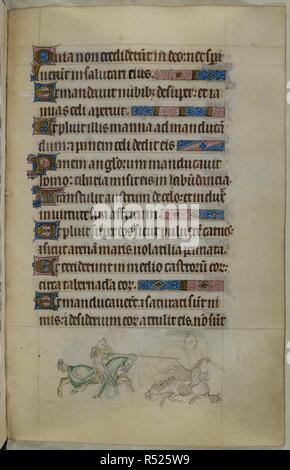 Quia non crediderunt in deo: nec spe
raverunt in salutari eius.
Et mandavit nubibus desuper: et ia
nuas celi aperuit.
Et pluit illis manna ad manducan
dum: et panem celi dedit eis
Panem angelorum manducavit
homo: cibaria misit eis in habundancia.
Transtulit austrum de celo: et indux
it in virtute sua affricum.
Et pluit super eos sicut pulverem carnes:
et sicut arenam maris volatilia pennata.
Et ceciderunt in medio castrorum eor:
circa tabernacula eor.
Et manducaverunt et saturati sunt ni
mis: et desiderium eor attulit eis: non sunt
alamy
R525W9
www.alamy.com